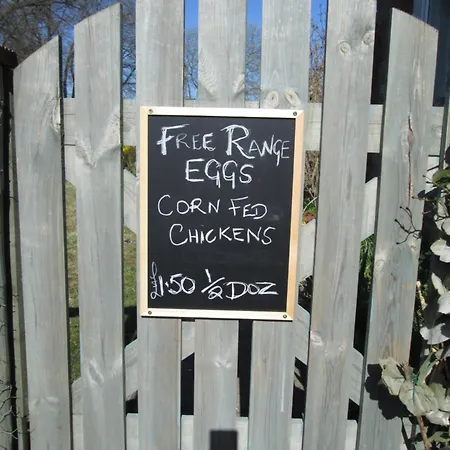 FREE RANGE
EGGS
CORN FED
CHICKENS
£1:50 ½ DOZ